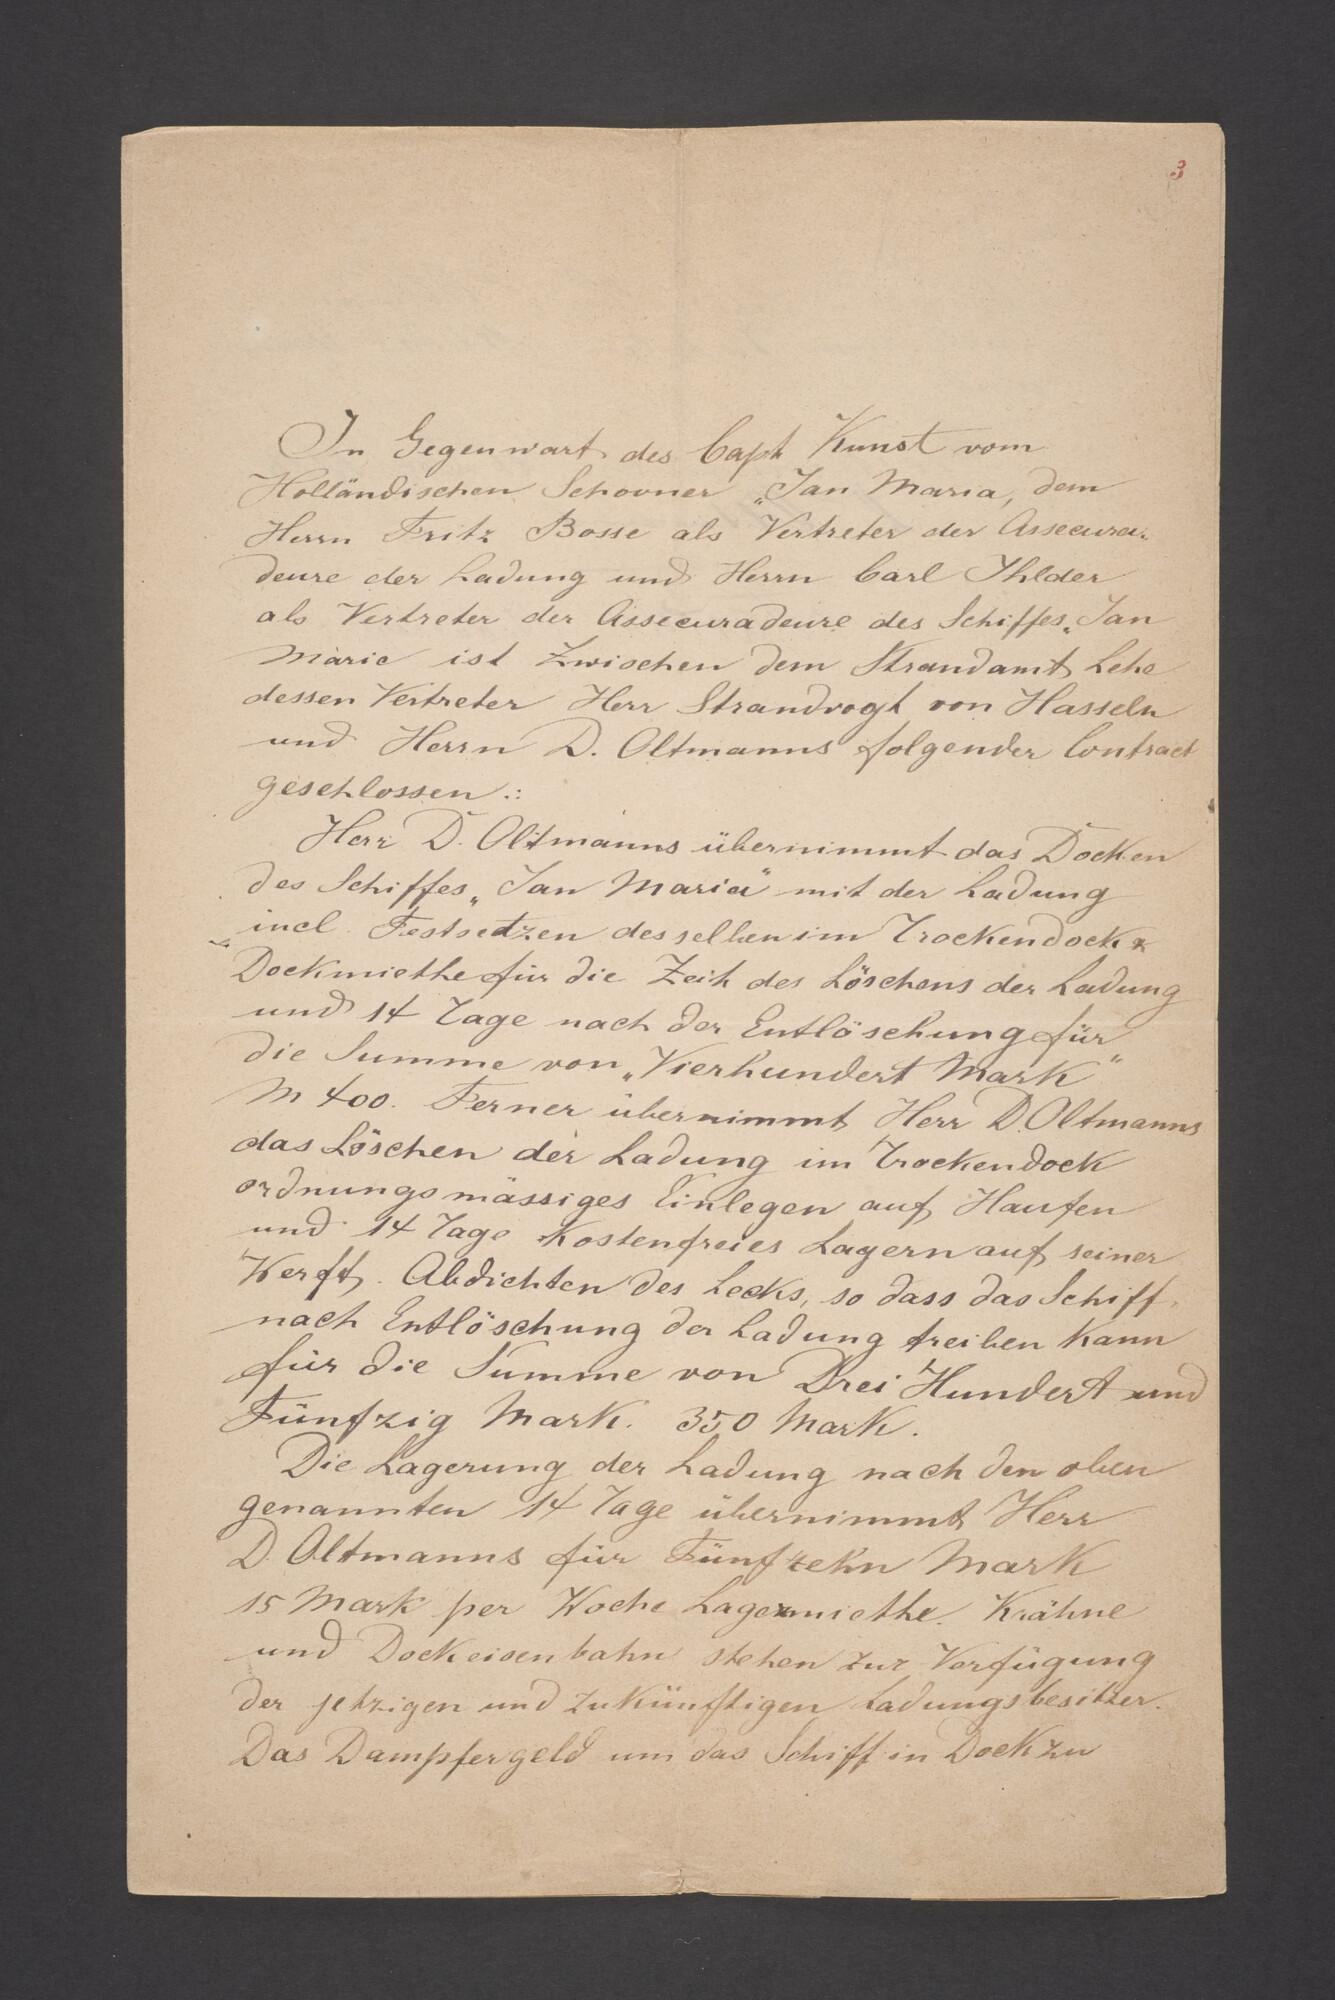 3
In Gegenwart des Capt Kunst vom
Holländischen Schooner „Jan Maria, dem
Herrn Fritz Bosse als Vertreter der Assecura-
deure der Ladung und Herrn Carl Ihlder
als Vertreter der Assecuradeure des Schiffes „Jan
Marie ist zwischen dem Strandamt Lehe
dessen Vertreter Herr Strandvogt von Hasseln
und Herrn D. Oltmanns folgender Contract
geschlossen.:
Herr D. Oltmanns übernimmt das Docken
des Schiffes „Jan Maria“ mit der Ladung
incl Festsetzen desselben im Trockendock &
Dockmiethe für die Zeit des Löschens der Ladung
und 14 Tage nach der Entlöschung für
die Summe von „Vierhundert Mark“
M 400. Ferner übernimmt Herr D. Oltmanns
das Löschen der Ladung im Trockendock
ordnungsmässiges Einlegen auf Haufen
und 14 Tage Kostenfreies Lagern auf seiner
Werft. Abdichten des Lecks, so dass das Schiff
nach Entlöschung der Ladung treiben kann
für die Summe von Drei Hundert und
Fünfzig Mark. 350 Mark.
Die Lagerung der Ladung nach den oben
genannten 14 Tage übernimmt Herr
D. Oltmanns für Fünfzehn Mark
15 Mark per Woche Lagermiethe. Krähne
und Dockeisenbahn stehen zur Verfügung
der jetzigen und zukünftigen Ladungsbesitzer.
Das Dampfergeld um das Schiff in Dock zu